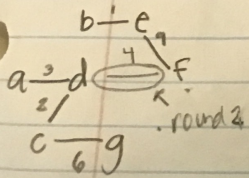 b 1 e
9
4
a 3 d f
2 k
. round 2
c 6 g